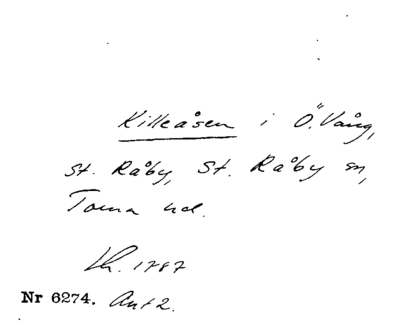 Killeåsen i Ö. Vång,
St. Råby, St. Råby sn,
Torna hd.
Lh. 1787
Nr 6274. Ant 2.